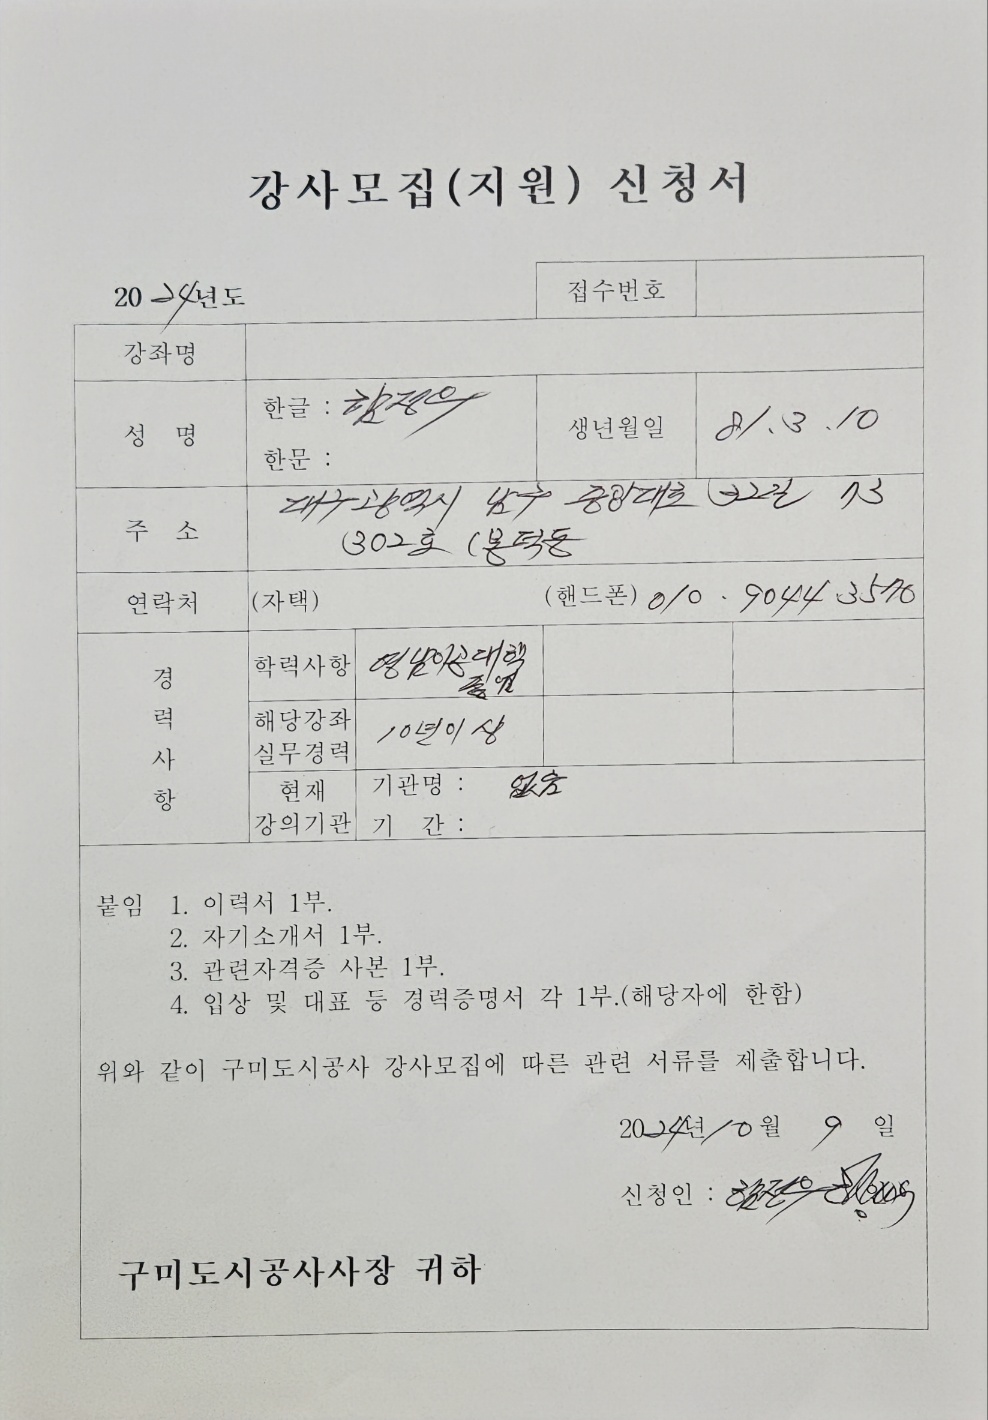 강사모집(지원) 신청서
2024년도
접수번호
강좌명
성 명
한글 : 함정우
한문 :
생년월일
81.3.10
주 소
대구광역시 남구 중앙대로 32길 73
302호 (봉덕동
연락처
(자택)
(핸드폰) 010.9044.3570
경력사항
학력사항
영남이공대학
졸업
해당강좌
실무경력
10년이상
현재
강의기관
기관명 : 없음
기 간 :
붙임 1. 이력서 1부.
2. 자기소개서 1부.
3. 관련자격증 사본 1부.
4. 입상 및 대표 등 경력증명서 각 1부.(해당자에 한함)
위와 같이 구미도시공사 강사모집에 따른 관련 서류를 제출합니다.
2024년 10월 9일
신청인 : 함정우
구미도시공사사장 귀하